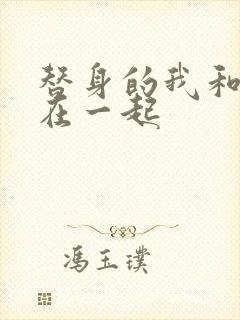 替身的我和
在一起
冯玉璞